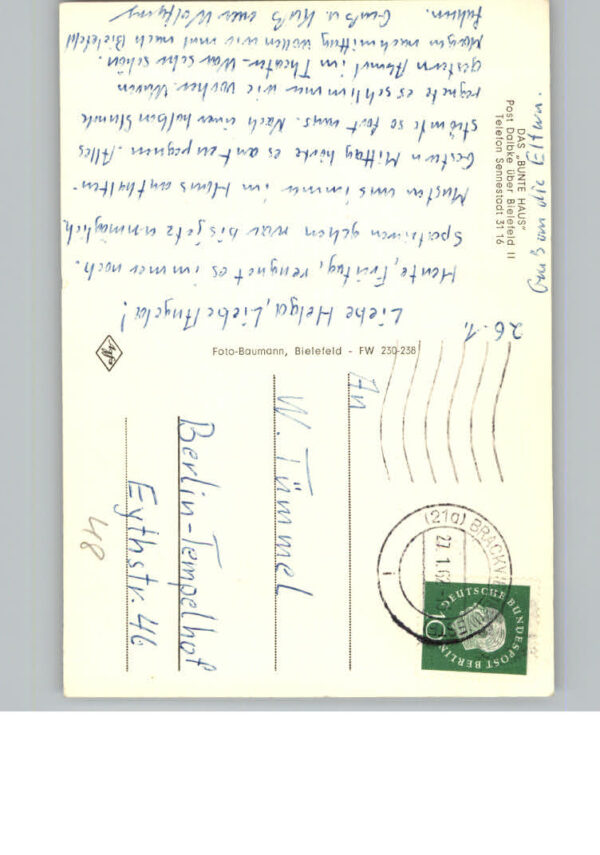 26.1.
Liebe Helga, Liebe Angela!
Heute, Freitag, rengnet es immer noch.
Spazieren gehen war bis jetz unmöglich.
Musten uns immer im Haus aufhalten.
Gestern Mittag hörte es an zu regnen. Alles
stürmte so fort raus. Nach einer halben Stunde
regnete es schlimmer wie vorher. Waren
gestern Abend im Theater. War sehr schön.
Morgen nachmittag wollen wir mal nach Bielefeld
fahren. Gruß u. Kuß euer Wolfgang
Gruß an die Eltern.
DAS „BUNTE HAUS"
Post Dalbke über Bielefeld II
Telefon Sennestadt 31 16
Foto-Baumann, Bielefeld - FW 230-238
Agfa
An
W. Tümmel
Berlin-Tempelhof
Eythstr. 46
48
(21a) BRACKW
27.1.62
DEUTSCHE BUNDESPOST BERLIN
10